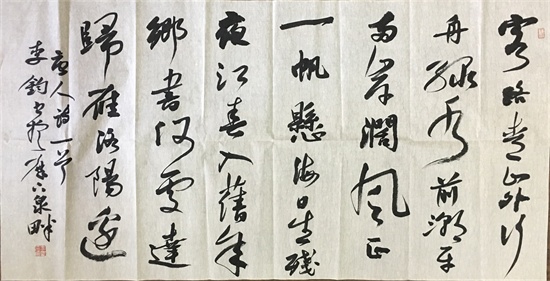 客路青山外行
舟綠水前潮平
兩岸濶風正
一帆懸海日生殘
夜江春入舊年
鄉書何處達
歸雁洛陽邊
唐人詩一首
李鈞書泉畔